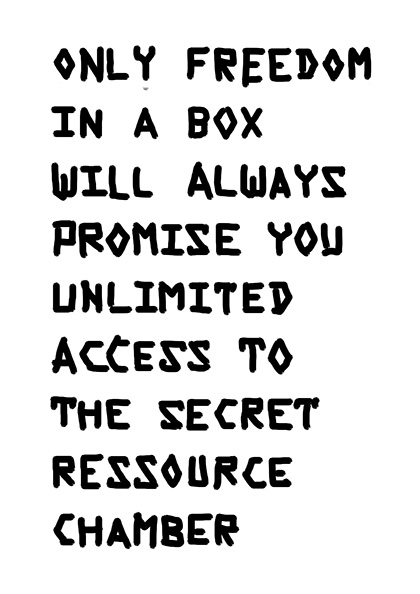 ONLY FREEDOM
IN A BOX
WILL ALWAYS
PROMISE YOU
UNLIMITED
ACCESS TO
THE SECRET
RESSOURCE
CHAMBER